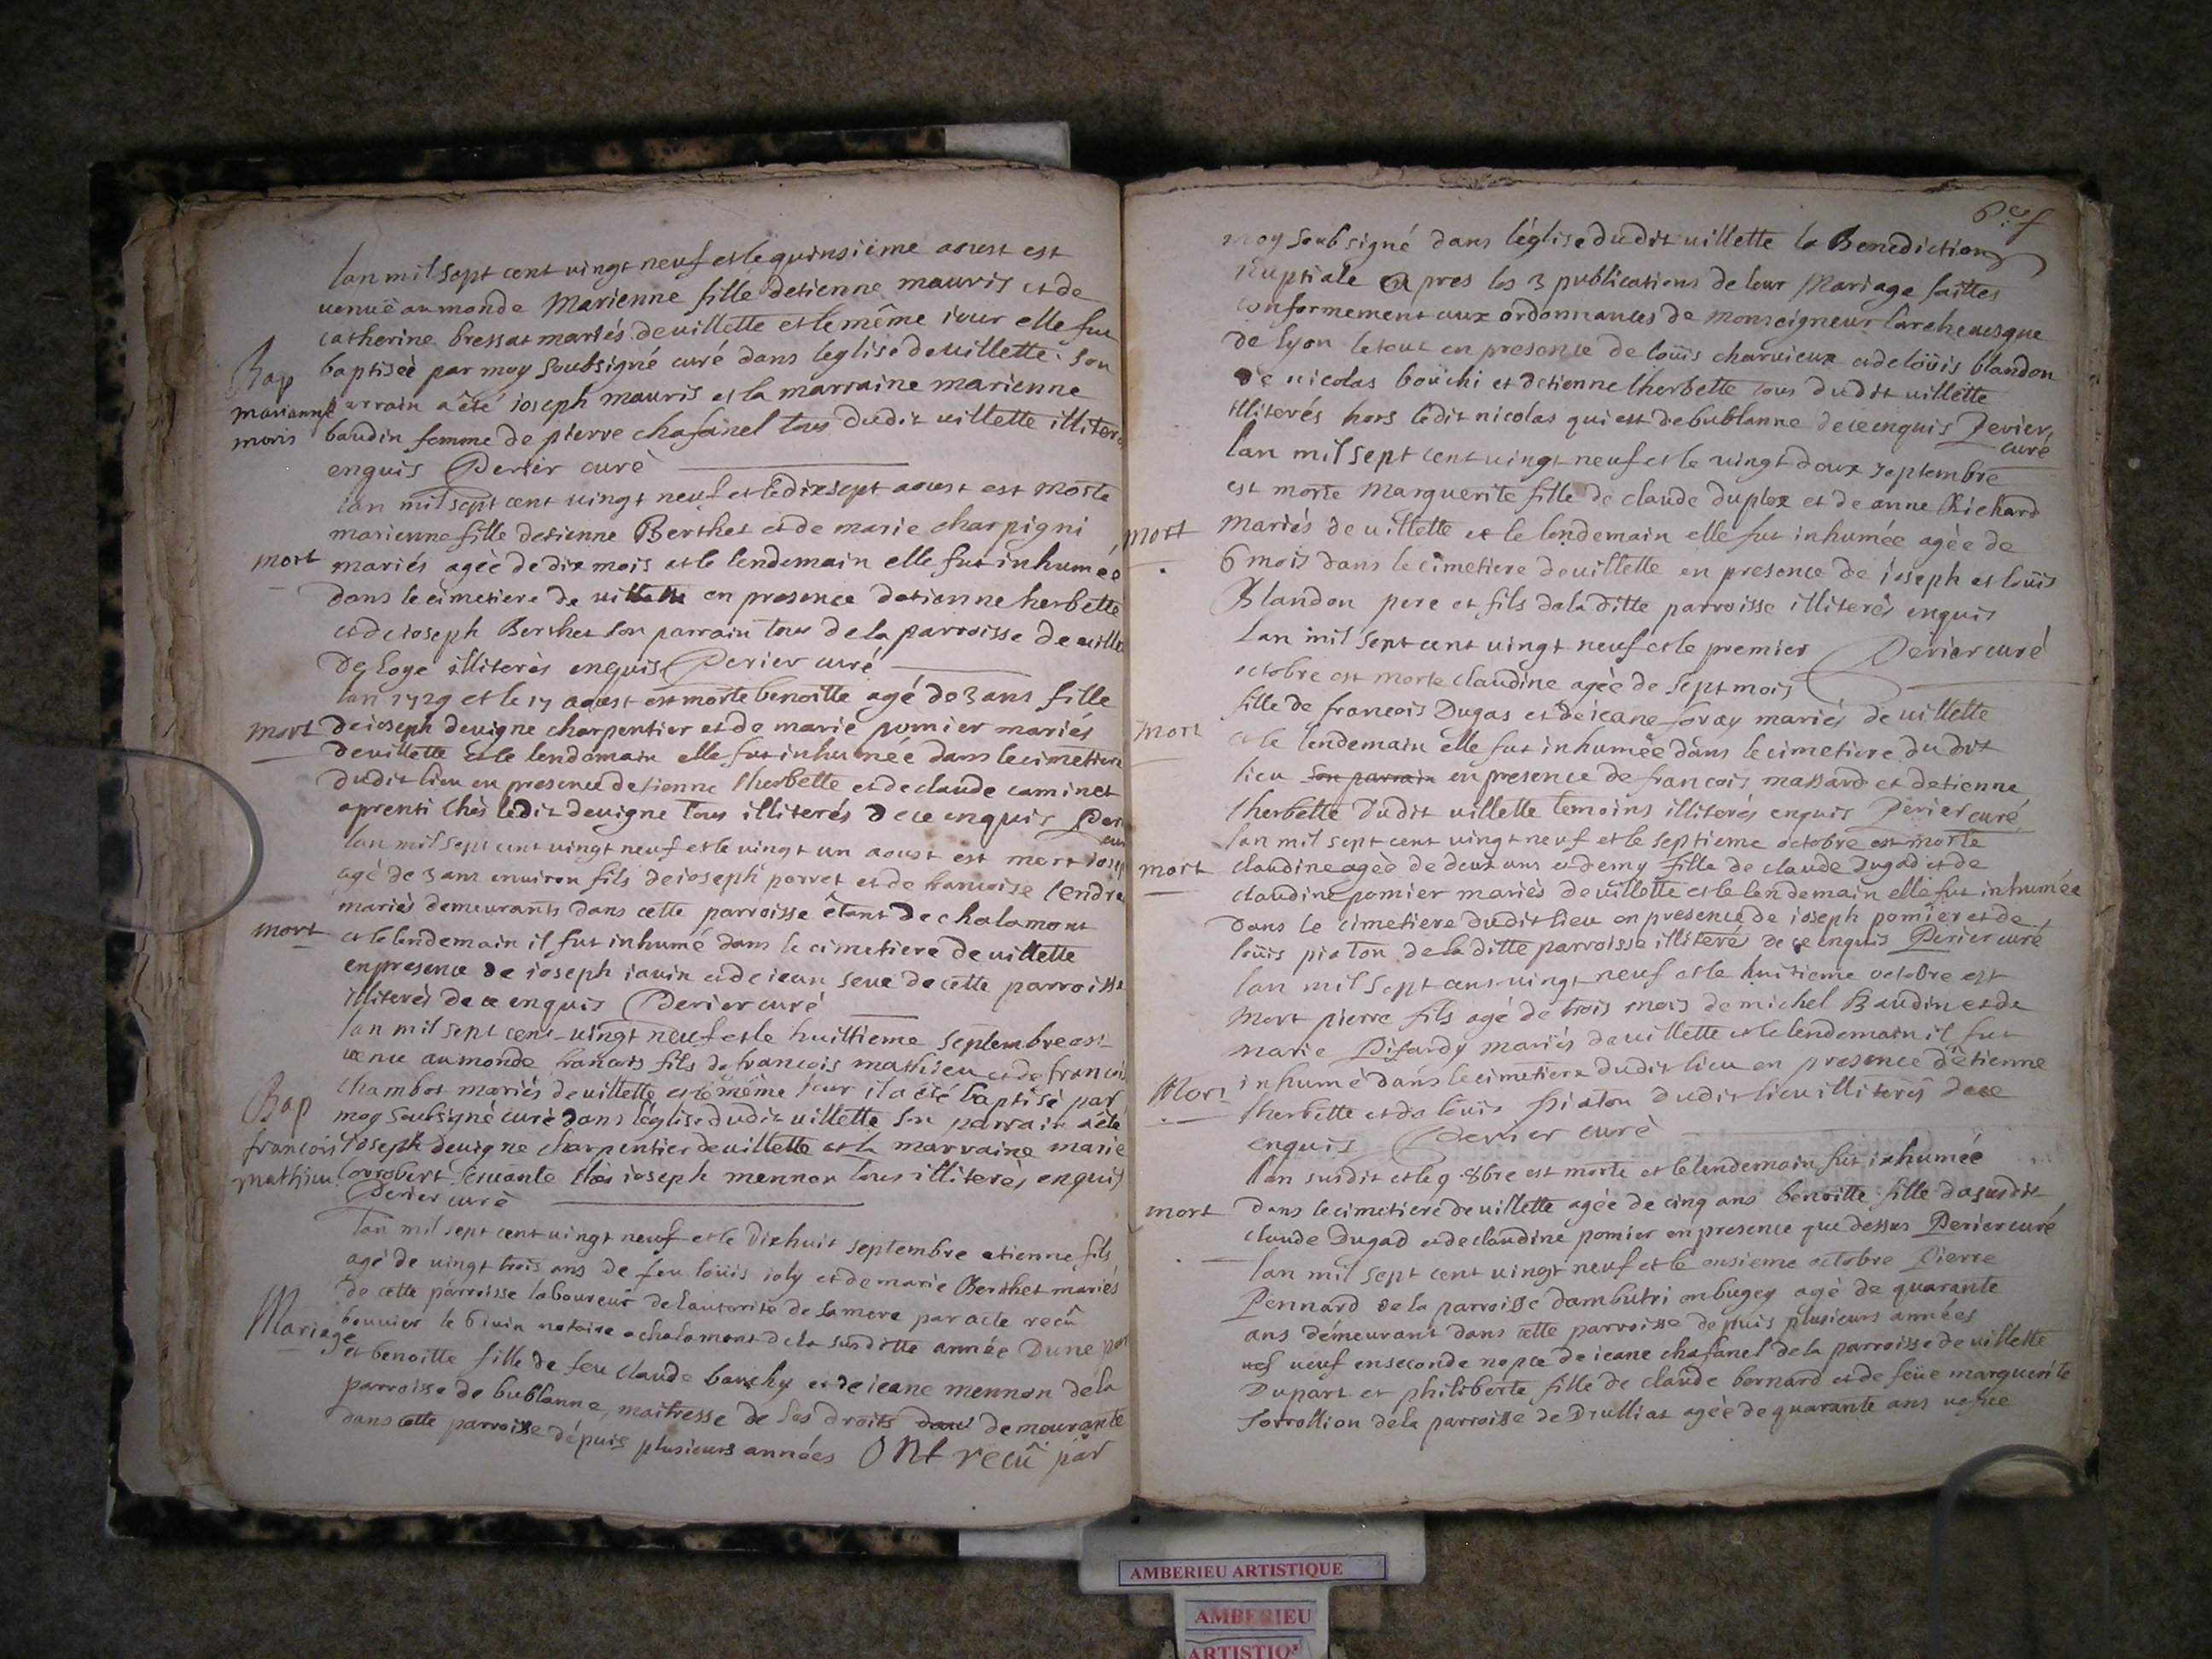 lan mil sept cent vingt neuf et le quinsième aoust est
venuë au monde Marienne fille detienne mauris et de
catherine bressat mariés de villette et le même iour elle fut
Bap baptisèè par moy soubsigné curé dans leglise de villette. Son
marianne parrain a été ioseph mauris et la marraine marienne
moris baudin femme de pierre chafanel tous dudit villette illiteres
enquis Perier curè
lan mil sept cent vingt neuf et le dixsept aoust est morte
marienne fille detienne Berthet et de marie charpigni
mort mariés agèè de dix mois et le lendemain elle fut inhumée
dans le cimetiere de villette en presence detienne herbette
et de ioseph Berthet son parrain tous de la parroisse de villette
De loye illiterès enquis Perier curé
lan 1729 et le 17 aoust est morte benoitte agé de 3 ans fille
mort de ioseph devigne charpentier et de marie pomier mariés
de villette et le lendemain elle fut inhumée dans le cimetiere
dudit lieu en presence detienne lherbette et de claude caminet
aprenti chès ledit devigne tous illiterés de ce enquis Perier
curé
lan mil sept cent vingt neuf et le vingt un aoust est mort
agé de 3 ans environ fils de ioseph porret et de francoise lendre
mariès demeurants dans cette parroisse étant de chalamont
mort et le lendemain il fut inhumé dans le cimetiere de villette
en presence de ioseph iavin et de iean seve de cette parroisse
illiterès de ce enquis Perier curé
lan mil sept cent vingt neuf et le huittieme septembre est
venu au monde francois fils de francois mathieu et de francoi
chambot mariés de villette et le même iour il a été baptisé par
Bap moy soubsigné curè dans leglise dudit villette Son parrain a été
francois ioseph devigne charpentier de villette et la marraine marie
mathieu corrobert servante chès ioseph mennon tous illiterès enquis
Perier curè
lan mil sept cent vingt neuf et le dixhuit septembre etienne fils
agé de vingt trois ans de feu loüis ioly et de marie Berthet mariés
de cette parroisse laboureur de lautorité de sa mere par acte reçû
Mariage bouvier le 6 iuin notaire a chalamont de la susditte année Dune par
et benoitte fille de feu claude bouchy et de ieane mennon de la
parroisse de bublanne, maitresse de ses droits demeurante
dans cette parroisse dépuis plusieurs années ONt reçû par
moy soubsigné dans léglise dudit villette la Benediction
nuptiale apres les 3 publications de leur Mariage faittes
conformement aux ordonnances de monseigneur larchevesque
de Lyon le tout en presence de loüis charvieux et de loüis blandon
de nicolas boüchi et detienne lherbette tous dudit villette
illiterés hors ledit nicolas qui est de bublanne de ce enquis Perier
curé
lan mil sept cent vingt neuf et le vingt deux septembre
est morte Marguerite fille de claude duplex et de anne Richard
mort mariés de villette et le lendemain elle fut inhumée agèe de
6 mois dans le cimetiere de villette en presence de ioseph et loüis
Blandon pere et fils de la ditte parroisse illiterés enquis
lan mil sept cent vingt neuf et le premier Perier curé
octobre est morte claudine agèe de sept mois
fille de francois Dugas et de ieane mariés de villette
mort et le lendemain elle fut inhumée dans le cimetiere dudit
lieu son parrain en presence de francois massard et detienne
lherbette dudit villette temoins illiterés enquis Perier curé
lan mil sept cent vingt neuf et le septieme octobre est morte
mort claudine agèe de deux ans et demy fille de claude dugad et de
claudine pomier mariés de villette et le lendemain elle fut inhumée
dans le cimetiere dudit lieu en presence de ioseph pomier et de
loüis piaton de la ditte parroisse illiteré de ce enquis Perier curé
lan mil sept cens vingt neuf et le huitieme octobre est
mort pierre fils agé de trois mois de michel Baudin et de
marie Pifardy mariés de villette et le lendemain il fut
Mort inhumé dans le cimetiere dudit lieu en presence detienne
lherbette et de loüis piaton dudit lieu illiterés de ce
enquis Perier curè
lan susdit et le 9 8bre est morte et le lendemain fut inhumée
mort dans le cimetiere de villette agée de cinq ans benoitte fille du susdit
claude Dugad et de claudine pomier en presence que dessus Perier curé
lan mil sept cent vingt neuf et le onsieme octobre Pierre
Pennard de la parroisse dambutri en bugey agé de quarante
ans démeurant dans cette parroisse depuis plusieurs années
veuf en seconde nopce de ieane chafanel de la parroisse de villette
Dupart et philiberte fille de claude bernard et de feüe marguerite
de la parroisse de Drulliat agèè de quarante ans
AMBERIEU ARTISTIQUE
AMBERIEU
ARTISTIQ